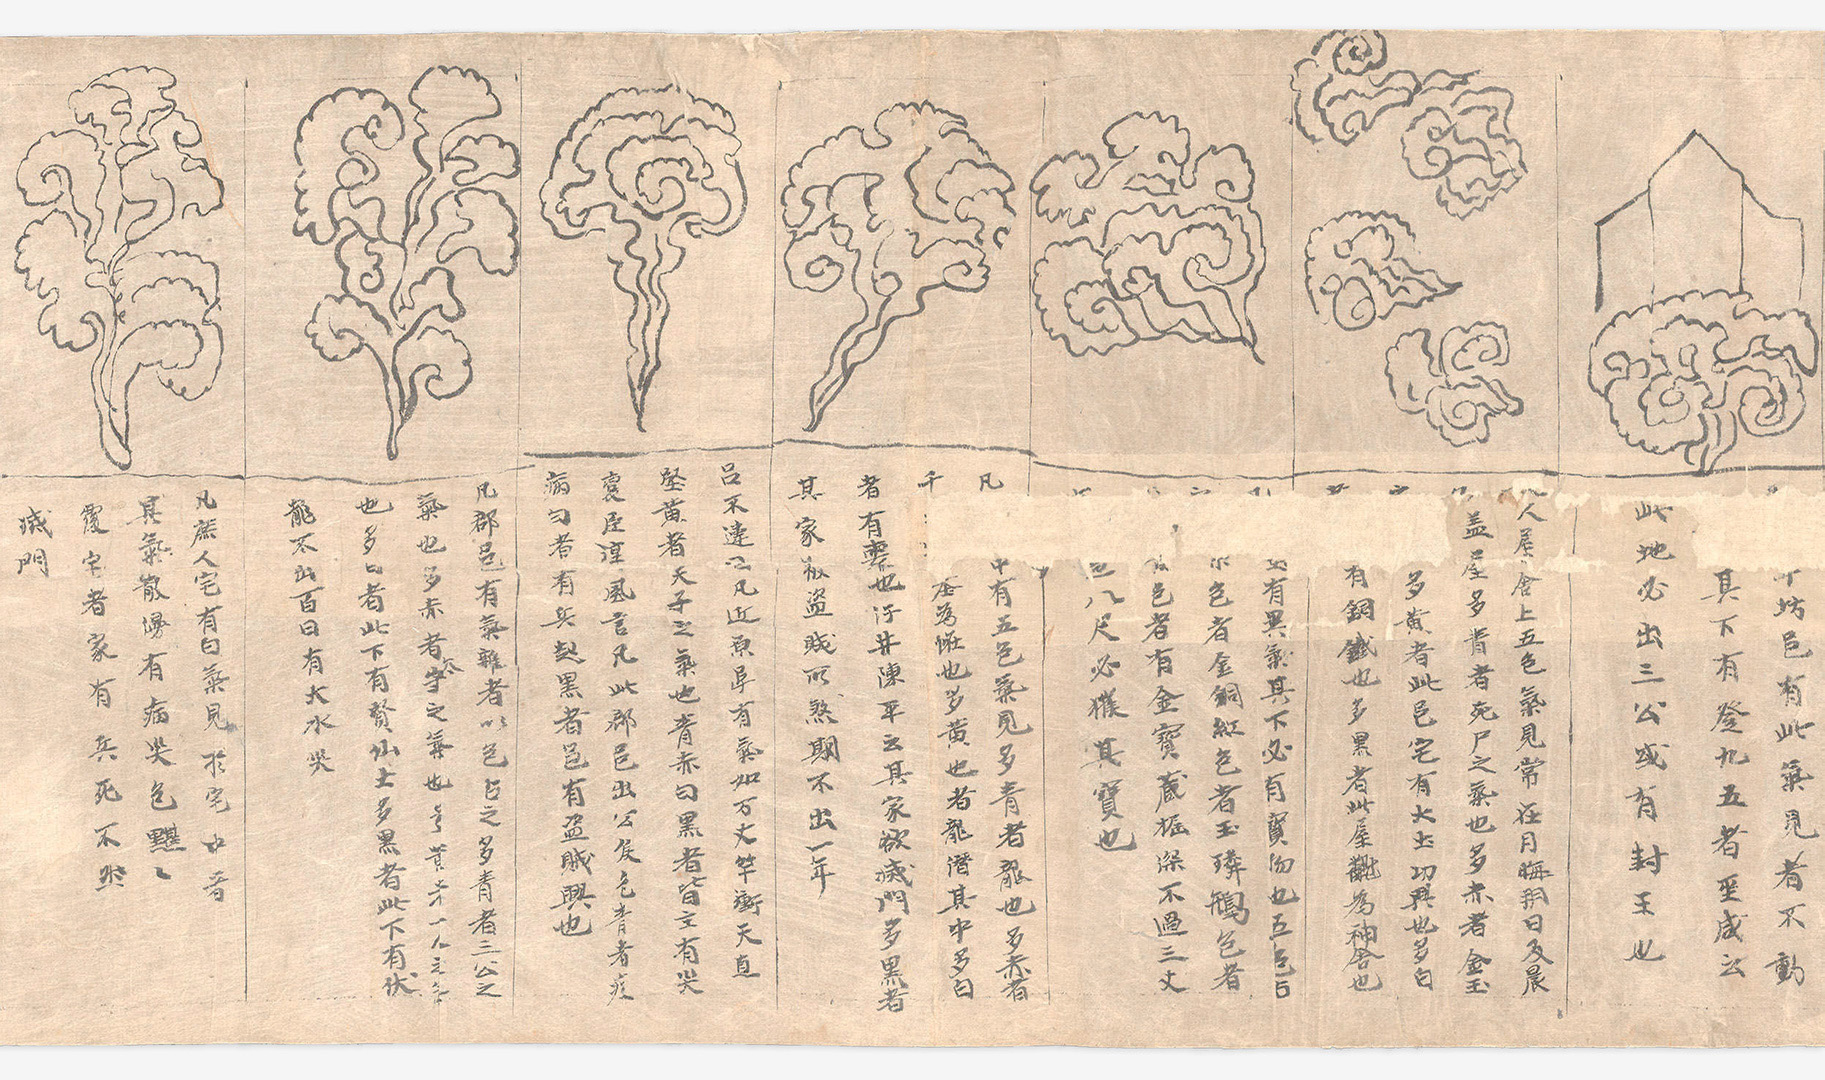 坊邑有此氣見者不動
其下有登九五者至咸云
此地必出三公或有封王也
人屋舍上五色氣見常在月晦朔日及晨
蓋屋多青者死尸之氣也多赤者金玉
多黄者此邑宅有大土功興也多白
有銅鐵也多黒者此屋觀為神舍也
有異氣其下必有寳物也五色占
色者金銅紅色者玉璘鵰色者
色者有金寳蔵掘深不過三丈
八尺必獲其寳也
凡
中有五色氣見多青者龍也多赤者
千
為怪也多黄也者龍潜其中多白
者有喪也汙井陳平云其家欲滅門多黒者
其家被盗賊所煞期不出一年
吕不違云凡近原阜有氣如万丈竿衝天直
竪黄者天子之氣也青赤白黒者皆主有灾
臣淳風言凡此郡邑出公侯色青者疫
病白者有兵起黒者邑有盗賊興也
凡郡邑有氣雜者以色占之多青者三公之
氣也多赤者之氣也
也多白者此下有賢仙士多黒者此下有伏
龍不出百日有大水灾
凡庶人宅有白氣見於宅中者
其氣散漫有病灾色黮〻
覆宅者家有兵死不然
滅門